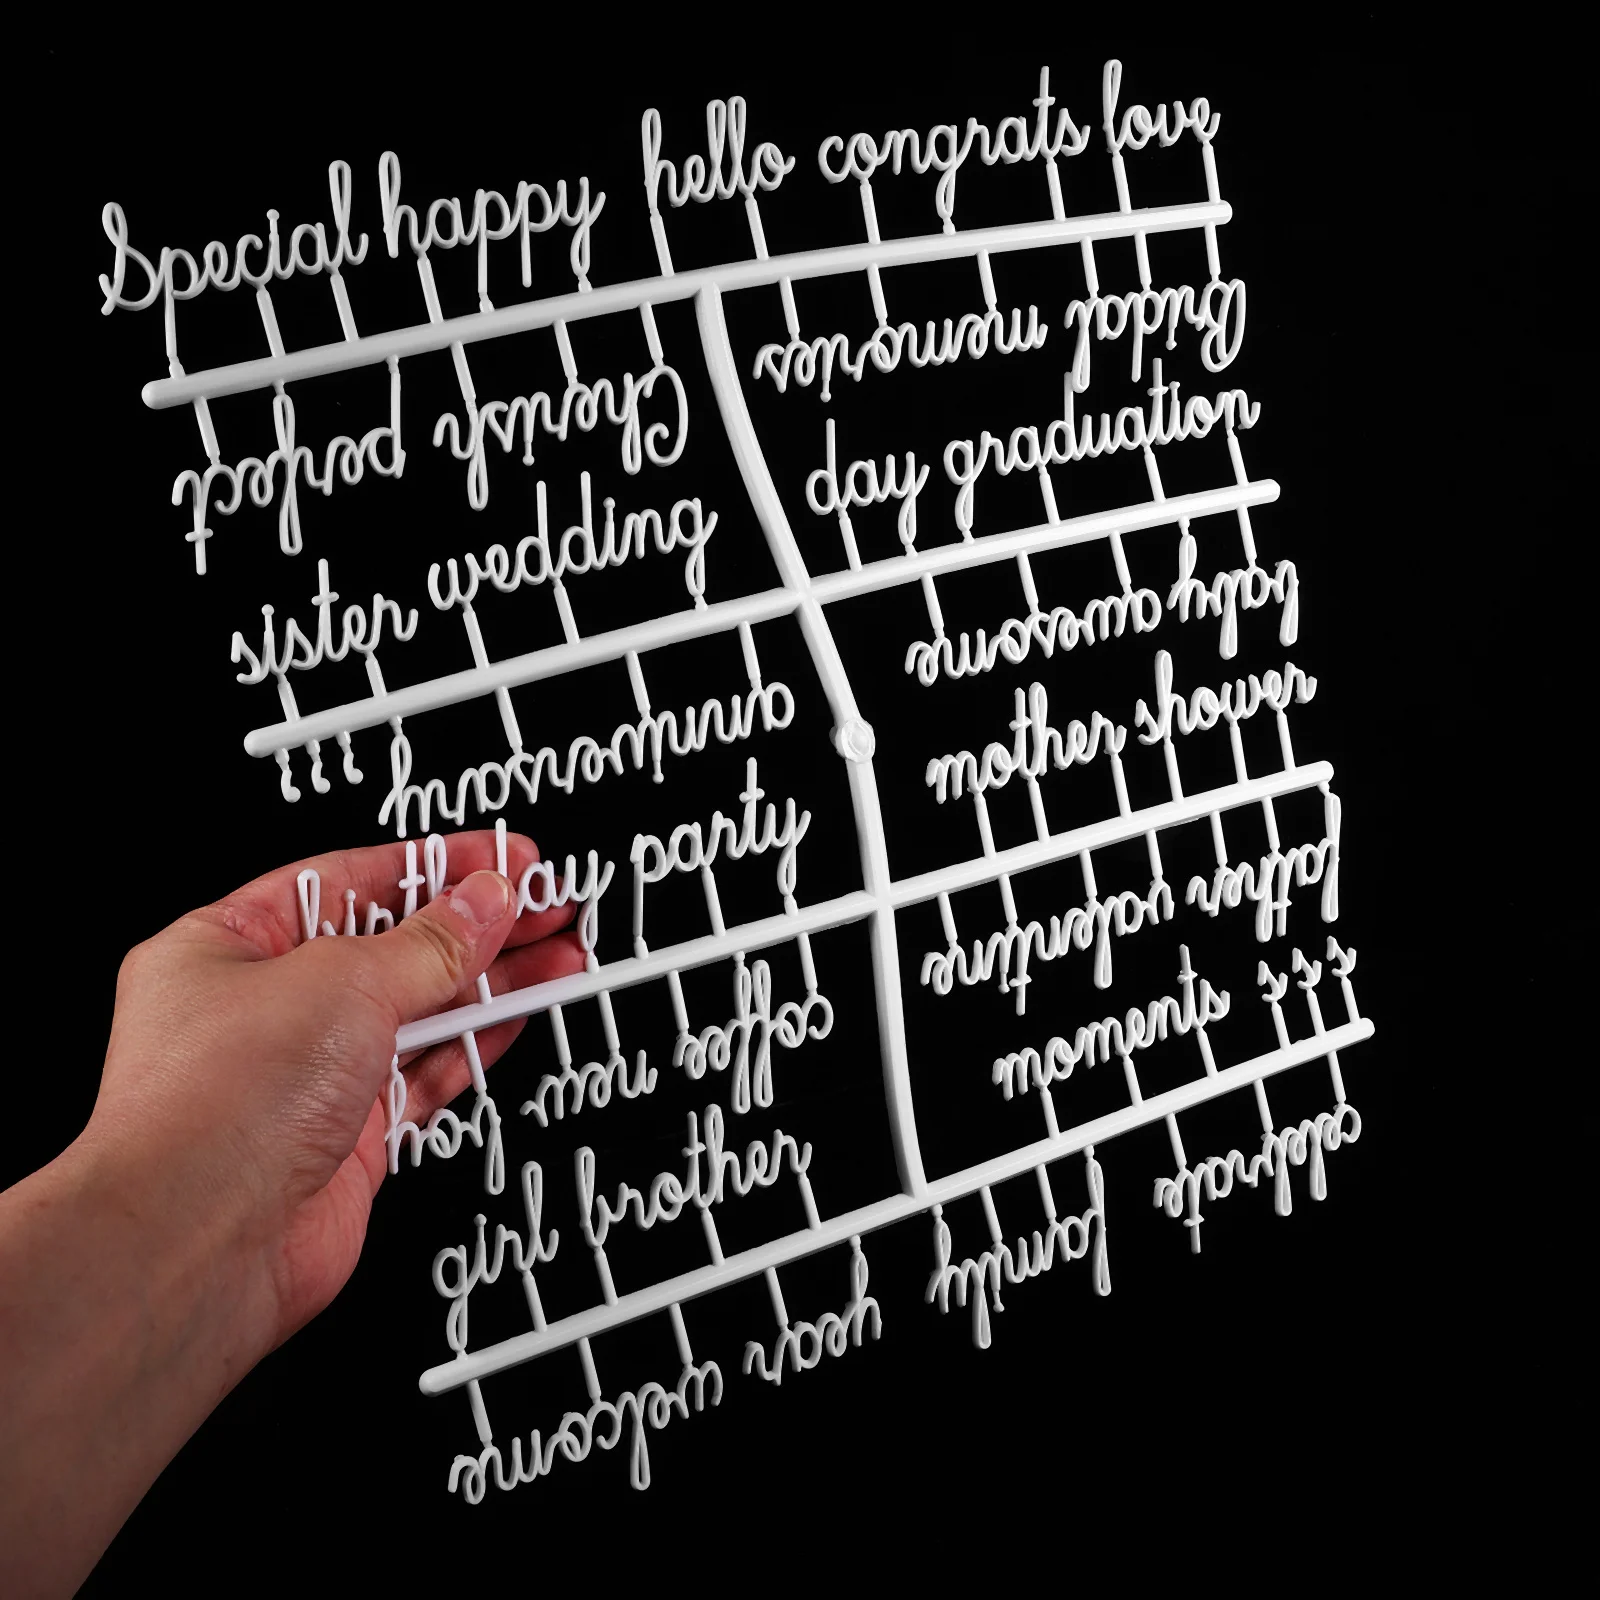 Special happy hello congrats love
Bridal memories Cherish perfect
sister wedding day graduation
baby awesome anniversary , , ,
birthday party mother shower
father valentine coffee new boy
girl brother moments s s s
celebrate family year welcome